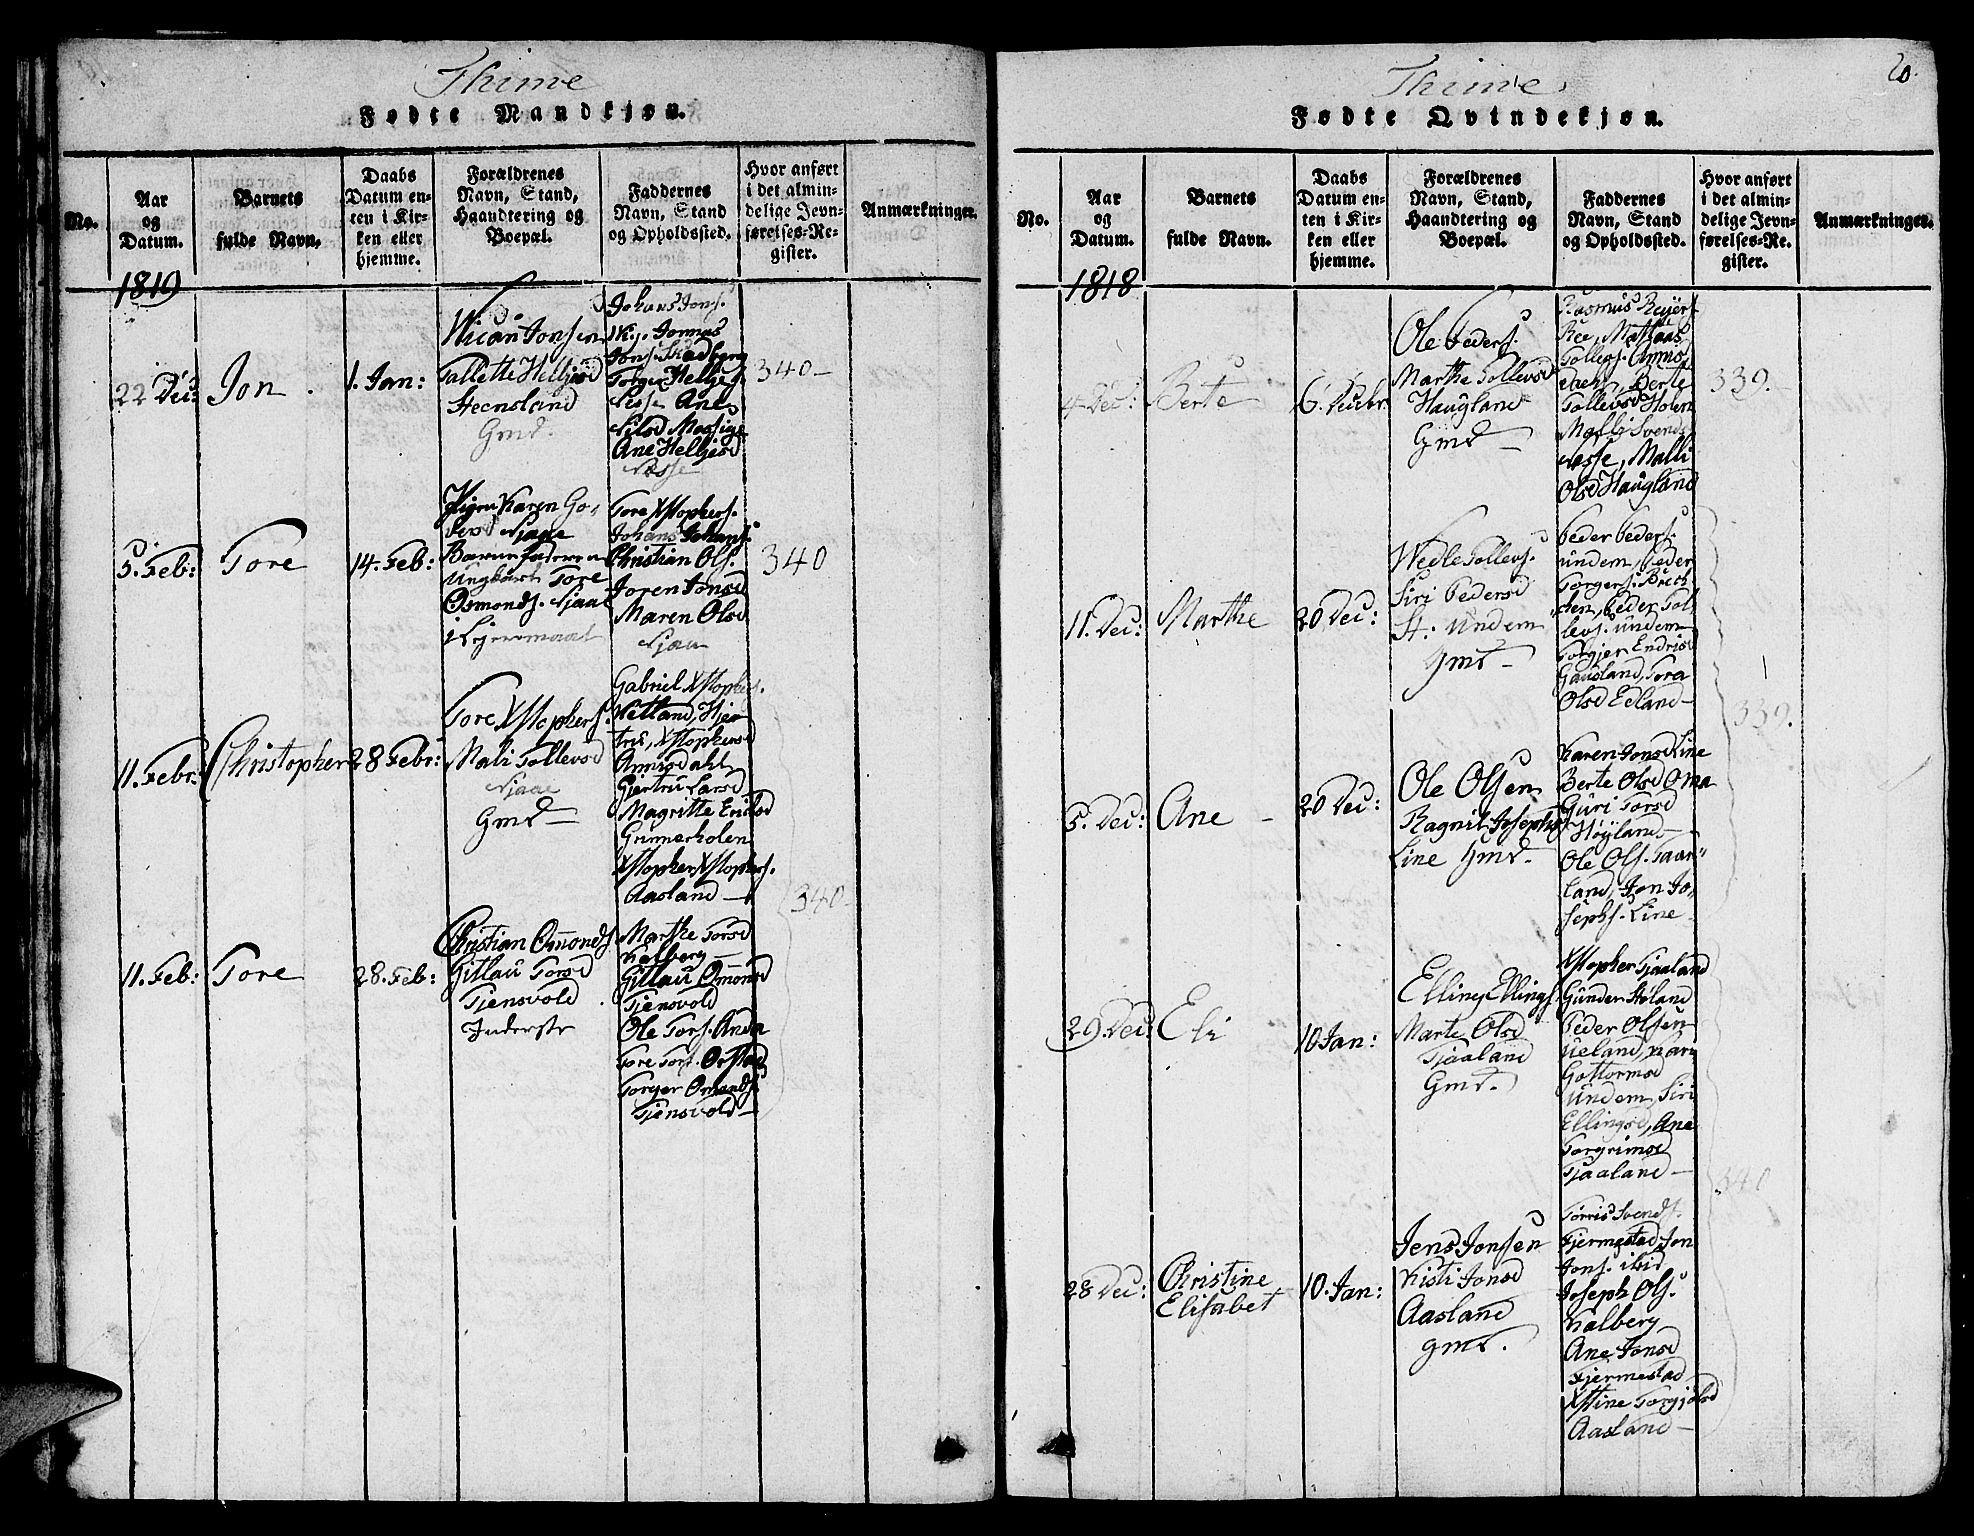 Thime
Fødte Mandkjøn.
No.
Aar
og
Datum.
Barnets
fulde Navn.
Daabs
Datum en-
ten i Kir-
ken eller
hjemme.
Forældrenes
Navn, Stand,
Haandtering og
Boepæl.
Faddernes
Navn, Stand
og Opholdssted.
Hvor anført
i det almin-
delige Jevn-
førelses-Re-
gister.
Anmærkninger.
1819
22 Dec:
Jon
1. Jan:
Jonsen
Tallette Helljesd
Heensland
Gmd.
Johans Jons.
Jonnas
Jons. Skadberg
Torger Helljes.
Nesse Ane
Nilsd Mossige
Ane Helljesd
Nesse
340
5. Feb:
Tore
14. Feb:
Pigen Karen Go-
Njaae
Barnefaderen
Ungkarl Tore
Osmonds. Njaae
i Lejermaal
Tore Xstophers.
Johans Johans.
Christian Ols.
Joren Jonsd
Maren Olsd
Njaae
340
11. Febr:
Christopher
28 Febr:
Tore Xstophers.
Mali Tollevsd
Njaae
Gmd
Gabriel Xstophers.
Netland, Hjer
tru, Xstophersd
Aamsdahl
Gjertru Larsd
Magritte Eriksd
Grimerholen
Xstopher Xstophers.
Aasland
340
11. Feb:
Tore
28. Feb:
Christian Omonds.
Gitlau Torsd
Tjensvold
Inderste
Marthe Torsd
Kalberg
Gitlau Omonsd
Tjensvold
Ole Tors. Anda
Tore Tors. Orstad
Torger Omonds.
Tjensvold
Thime
20.
Fødte Qvindekjøn.
No.
Aar
og
Datum.
Barnets
fulde Navn.
Daabs
Datum en-
ten i Kir-
ken eller
hjemme.
Forældrenes
Navn, Stand,
Haandtering og
Boepæl.
Faddernes
Navn, Stand
og Opholdssted.
Hvor anført
i det almin-
delige Jevn-
førelses-Re-
gister.
Anmærkninger.
1818
4 Dec:
Berte
6. Decbr.
Ole Peders.
Marthe Tollevsd
Haugland
Gmd
Rasmus Reyers.
Ree, Mathias
Tollevs. Anns
dahl, Berte
Tollevsd Holen
Malli Svends
Nesse, Malli
Olsd Haugland
339.
11. Dec:
Marthe
20 Dec:
Wedle Tollevs.
Siri Pedersd
St. Undem
Gmd
Peder Peders.
undem, Peder
Torgers. Brech
ken, Peder Tol
levs. undem
Torgjer Endrisd
Gausland, Tora
Olsd Edland
339.
5. Dec:
Ane
20 Dec:
Ole Olsen
Ragnil Josephsd
Line Gmd.
Karen Jonsd Line
Berte Olsd Oma
Guri Torsd
Høyland
Ole Ols. Taar-
land, Jon Jo-
sephs. Line
29. Dec:
Eli
10 Jan:
Elling Ellings.
Marte Olsd
Tjaaland
Gmd.
Xstopher Tjaaland
Gunder Høland
Peder Olsen
Ueland, Kari
Gottormsd
Undem, Siri
Ellingsd, Ane
Torgrimsd
Tjaaland
340
28 Dec:
Christine
Elisabet
10. Jan:
Jens Jonsen
Kisti Jonsd
Aasland
gmd.
Torris Svends.
Fjermestad Jon
Jons. ibid
Joseph Ols.
Kalberg
Ane Jonsd
Fjermestad
Xstine Torgjølsd
Aasland